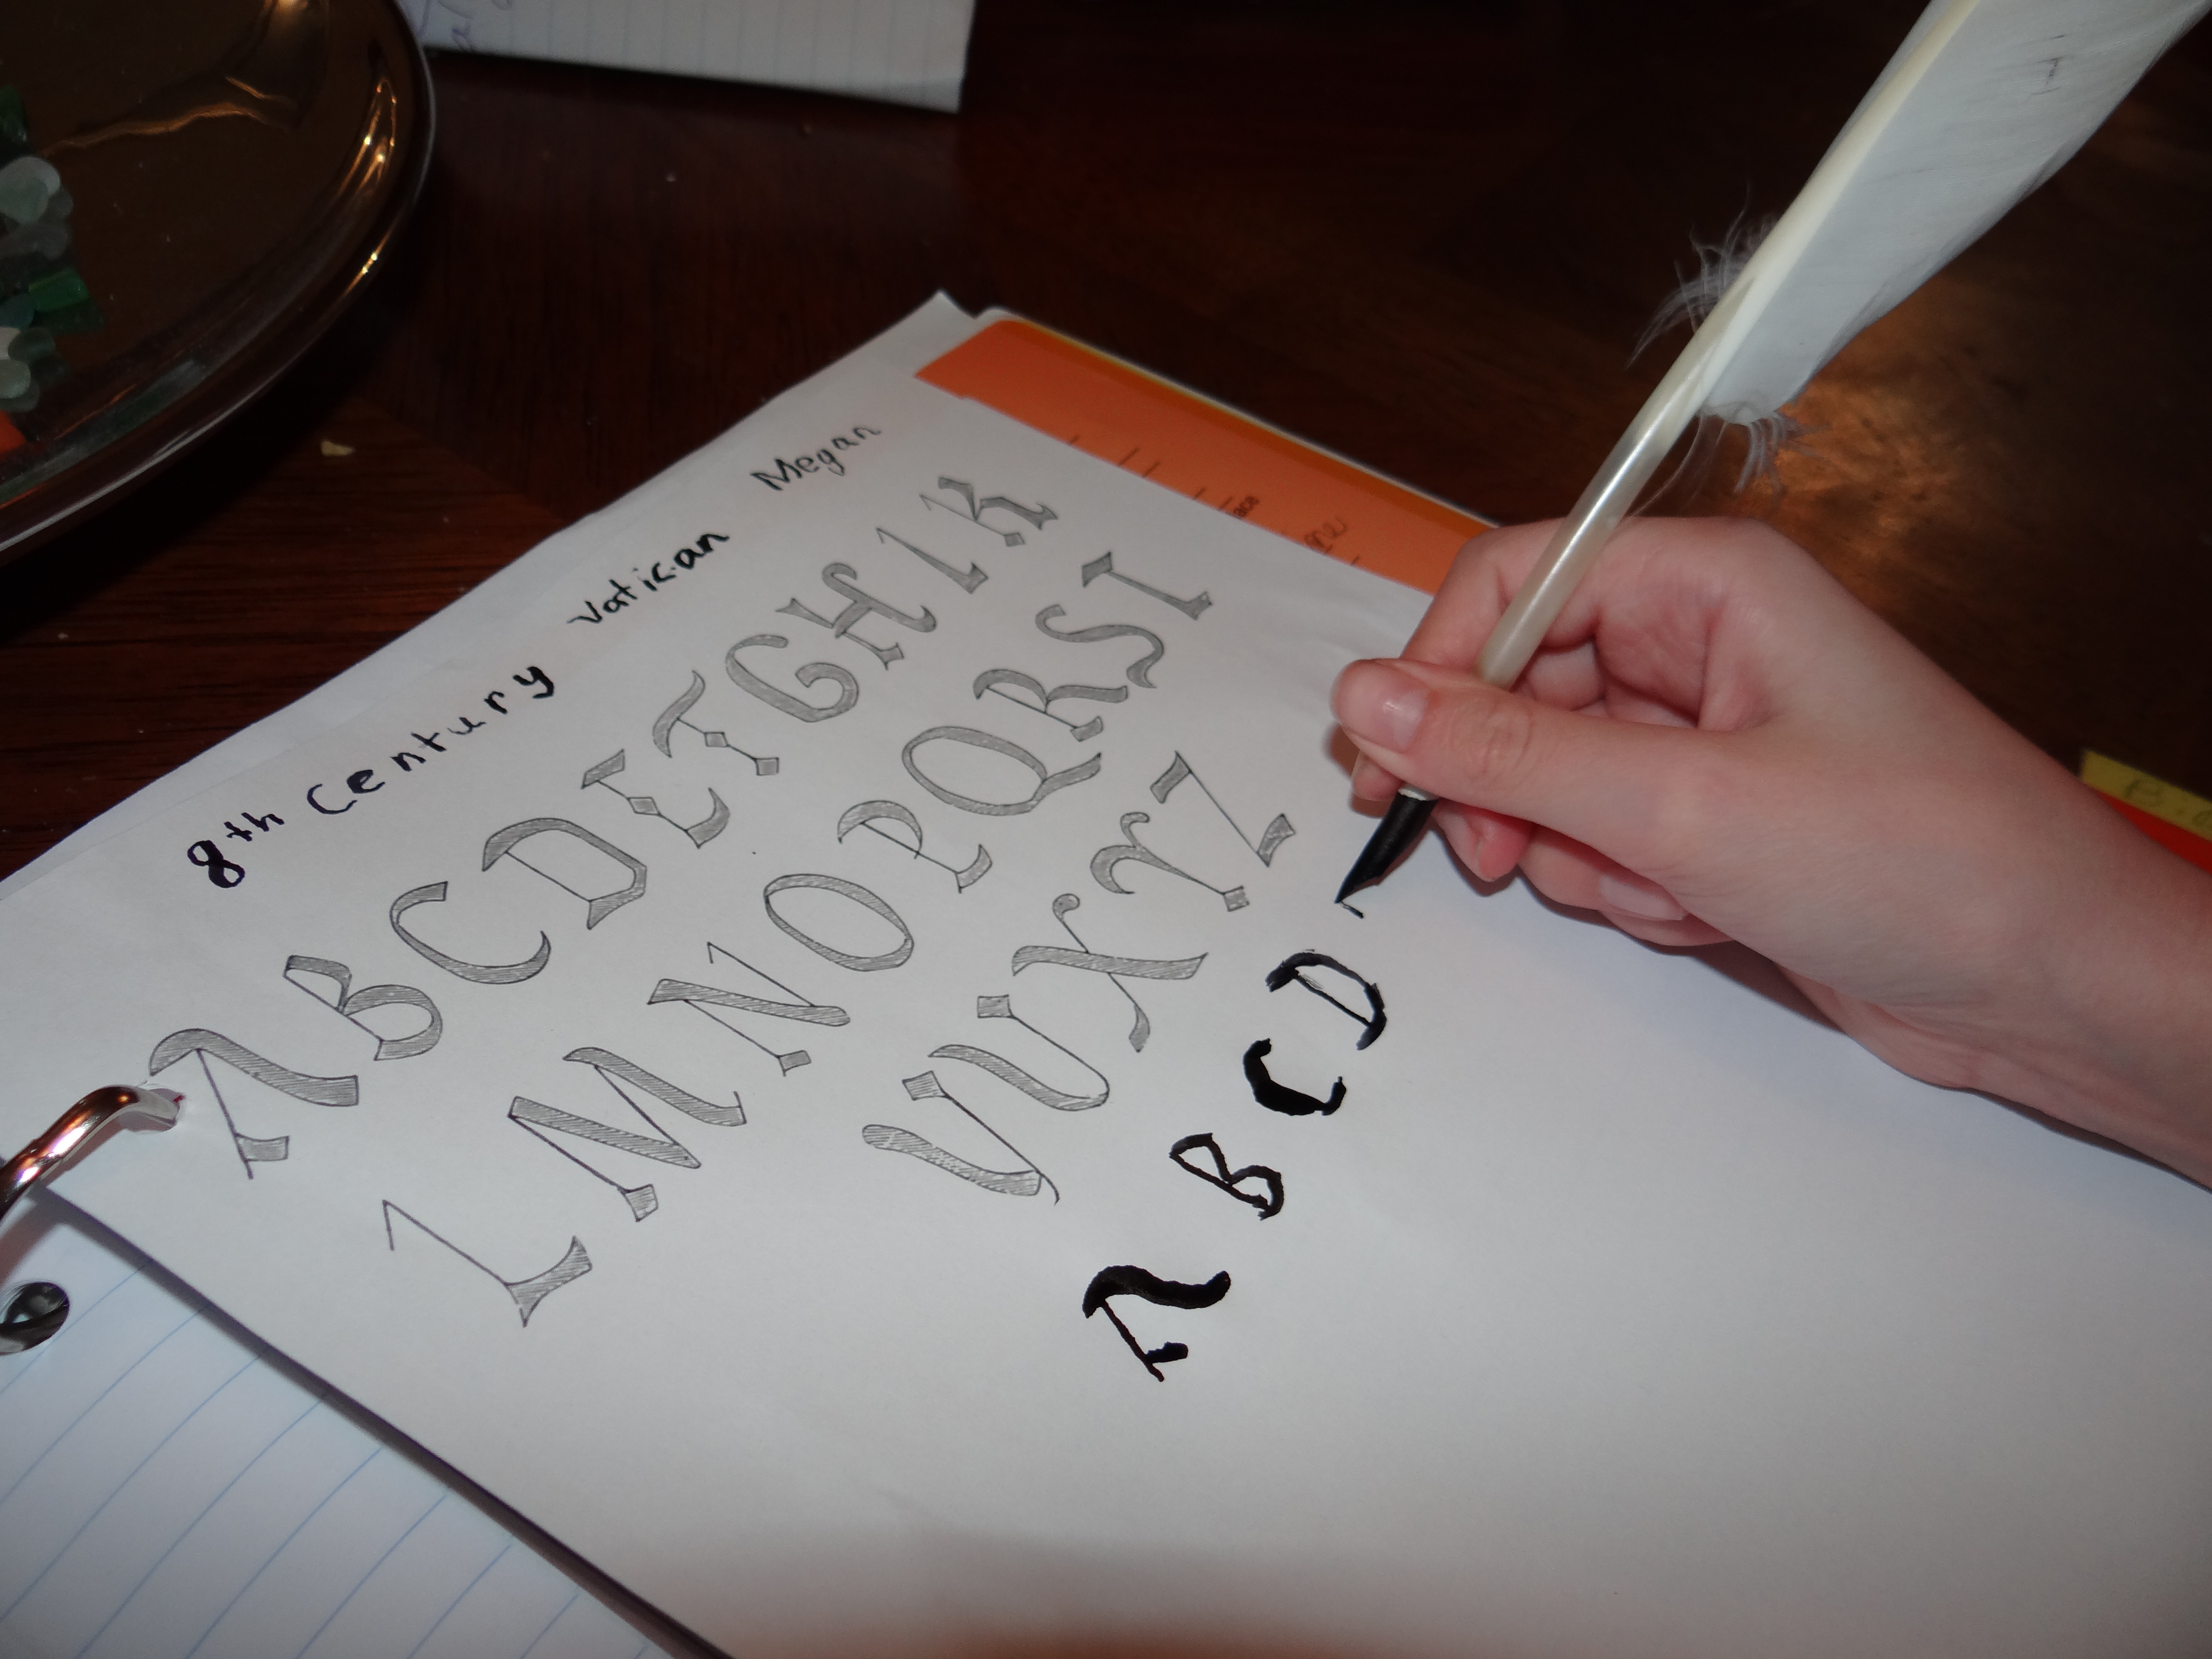 8th Century Vatican Megan
A B C D E F G H I K
L M N O P Q R S T
V U X Y Z
A B C D